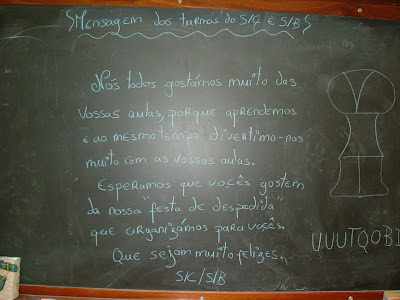 Mensagem das turmas do 5/C e 5/B
Nós todos gostámos muito das
vossas aulas, porque aprendemos
e ao mesmo tempo divertimo-nos
muito com as vossas aulas.
Esperamos que voçês gostem
da nossa "festa de despedida"
que organizámos para voçês.
Que sejam muito felizes.
5/C / 5/B
UUUTQOBD